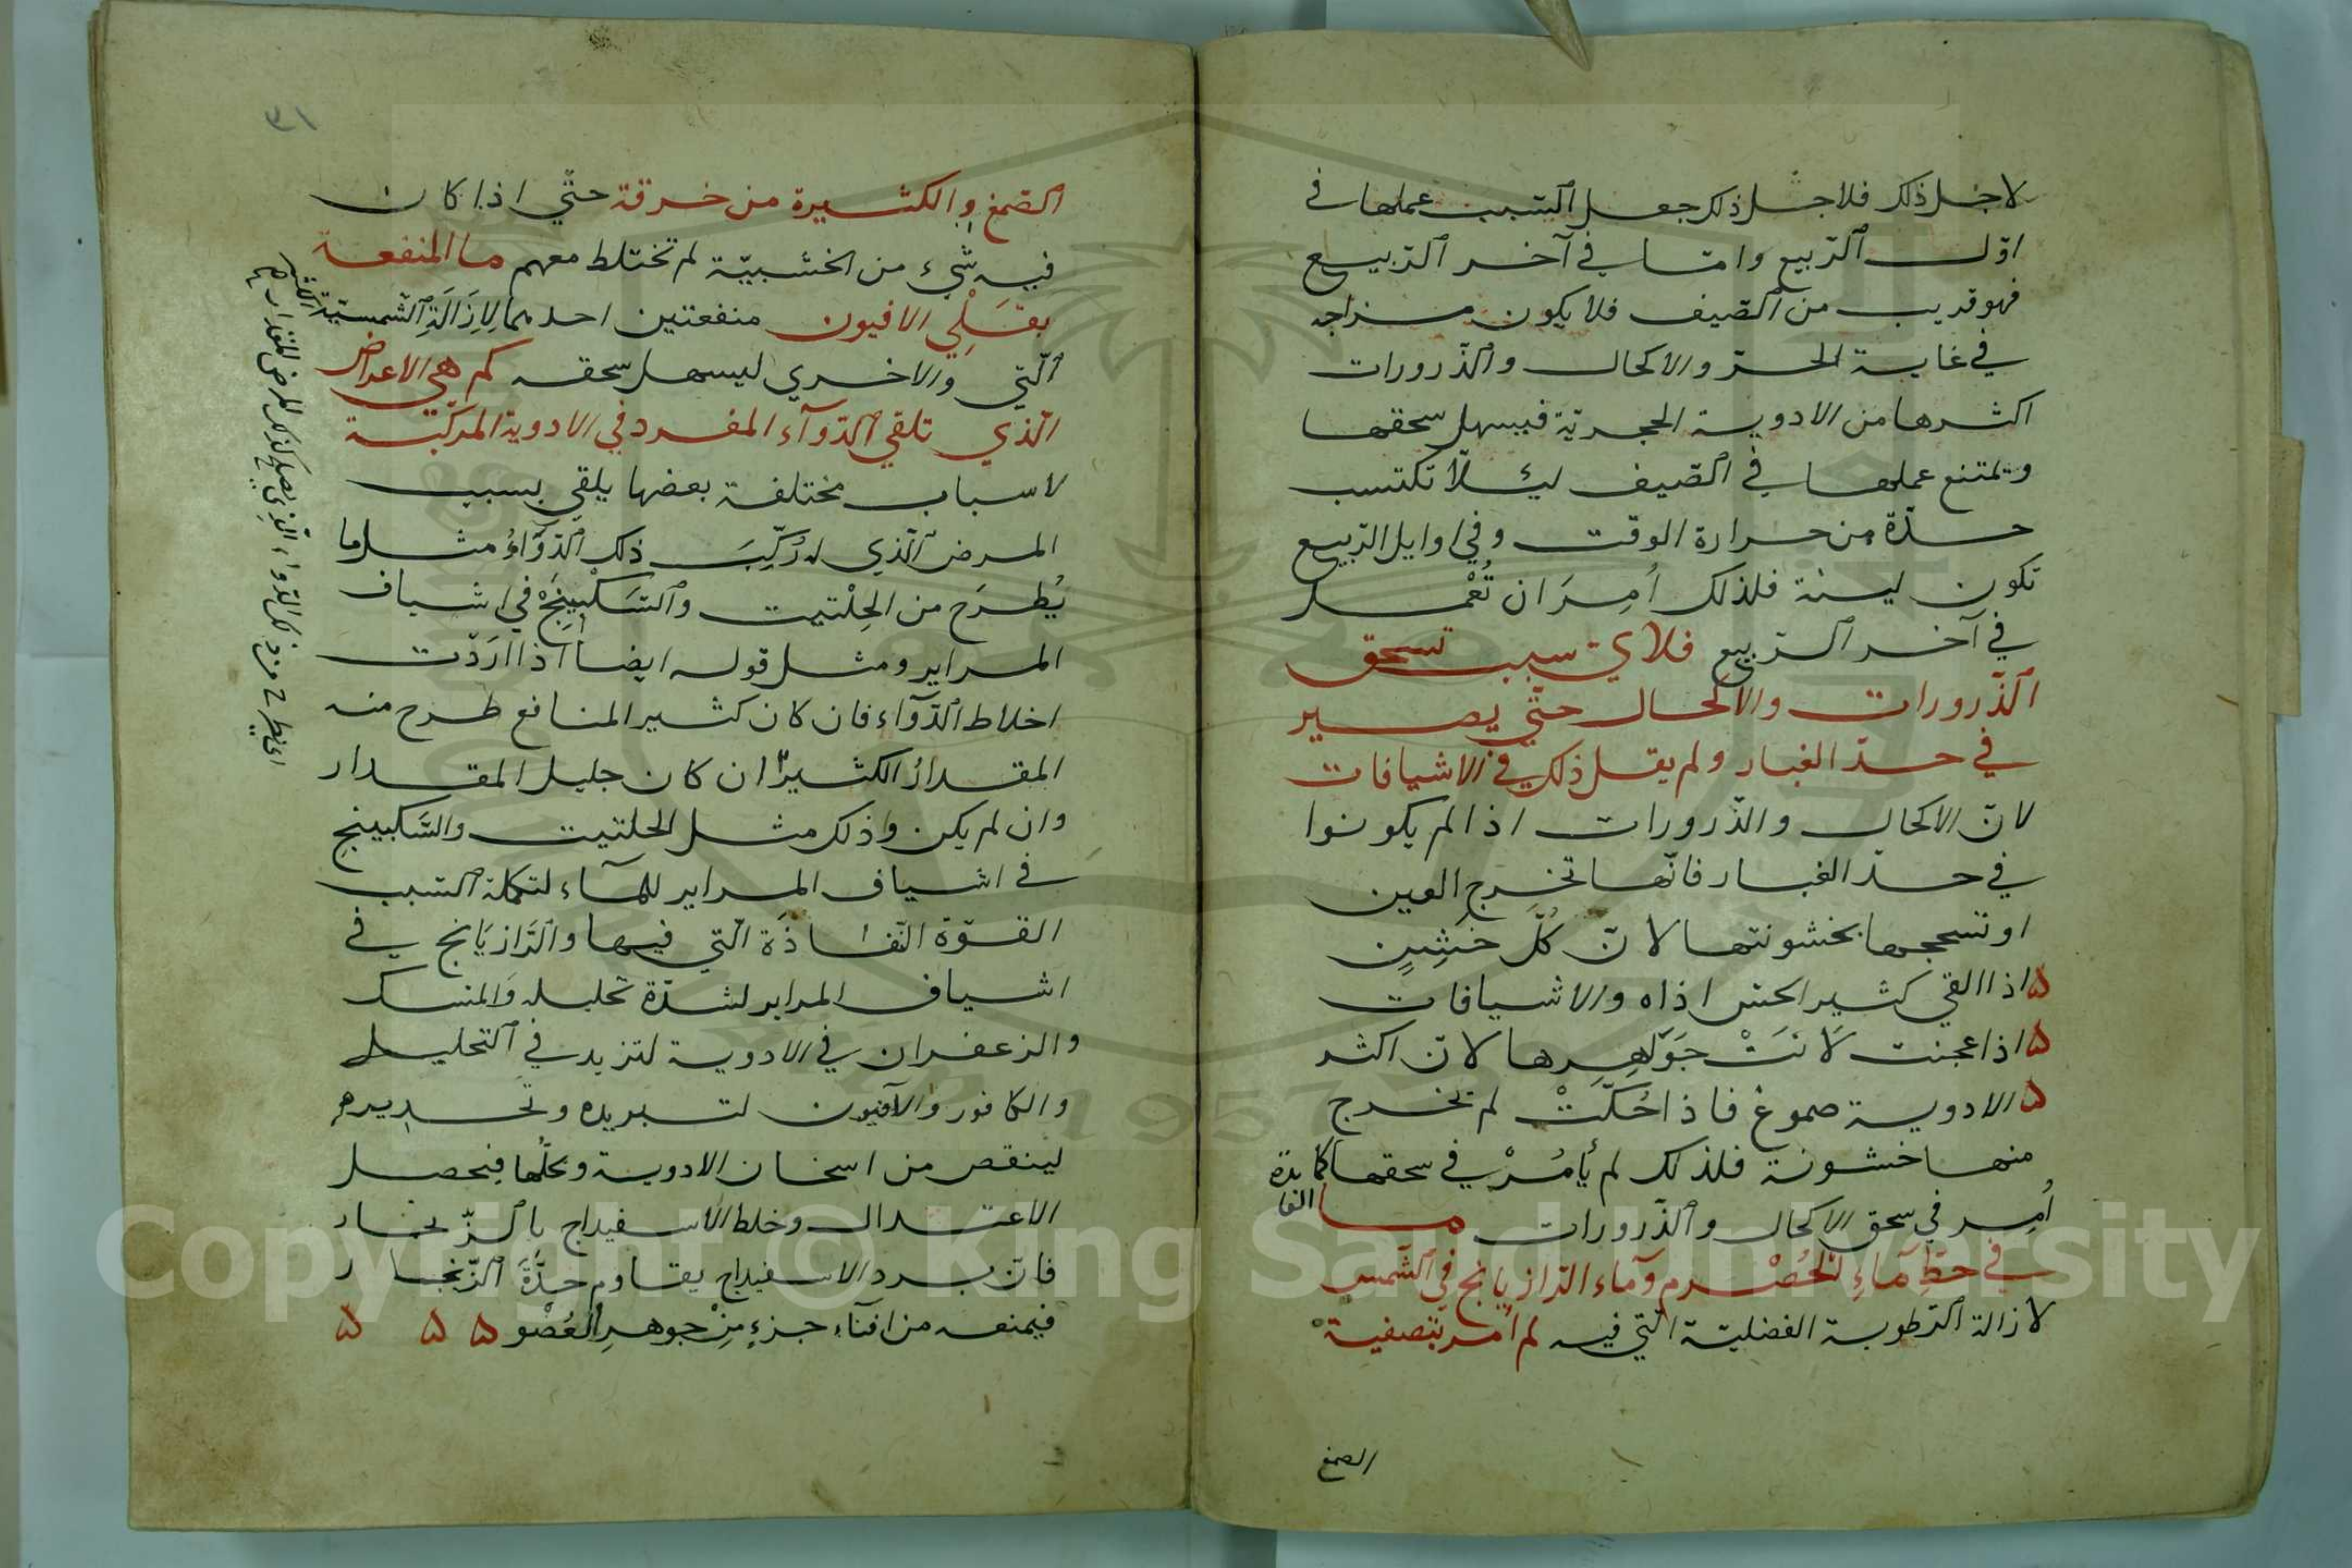 لاجل ذلك فلاجل ذلك جعل السبب عملها في
اول الربيع وامّا في آخر الربيع
فهو قريب من الصّيف فلا يكون مزاجه
في غاية الحرّ والاكحال والذّرورات
اكثرها من الادوية الحجريّة فيسهل سحقها
وتمتنع عملها في الصّيف ليئلّا تكتسب
حدّة من حرارة الوقت وفي اوايل الرّبيع
تكون لينة فلذلك اُمِرَ ان تُعْمل
في آخر الرّبيع فلايّ سبب تسحق
الذّرورات والاكحال حتّي يصير
في حدّ الغبار ولم يقل ذلك في الاشيافات
لانّ الاكحال والذّرورات اذا لم يكونوا
في حدّ الغبار فانّها تخرج العين
او تسحجها بخشونتها لانّ كُلّ خَشِينٍ
اذا القي كثير الحس اذاه والاشيافات
اذا عجنت لَانَتْ جَوَاهِرها لانّ اكثر
الادوية صموغ فاذا حُكّتْ لم تخرج
منها خشونة فلذلك لم يأمُرْ في سحقها كما
اُمِر في سحق الاكحال والذّرورات ما الفايدة
في حطّ مَاءِ الحُصْرم وماء الرّازيانج في الشّمس
لازالة الرّطوبة الفضليّة الّتي فيه لم اُمر بتصفية
الصمغ
٣١
الصّمغ والكثيرة من خرقة حتّي اذا كان
فيه شيء من الخشبيّة لم تختلط معهم ما المنفعة
بقَلْي الافيون منفعتين احدهما لِازَالَةِ الشّمسيّة
الّتي والاخري ليسهل سحقه كم هي الاعراض
الّذي تلقي الدّوآء المفرد في الادوية المركّبة
لاسباب مختلفة بعضها يلقي بسبب
المرض الّذي له رُكِّبَ ذلك الدّوَاءُ مثل ما
يُطرَح من الحِلْتيت والسّكْبِينَجْ في اشياف
المراير ومثل قوله ايضا اذا ارَدْت
اخلاط الدّوآء فان كان كثير المنافع طرح منه
المقدارُ الكثيرُ ان كان جليل المقدار
وان لم يكن وذلك مثل الحلتيت والسّكبينج
في اشياف المراير للمآء لتكملة السبب
القوّة النّفاذَة الّتي فيها والرّازيَانج في
اشياف المراير لشدّة تحليله والمسك
والزعفران في الادوية لتزيد في التّحليل
والكافور والافيون لتبريده وتخديره
لينقص من اسخان الادوية وتحلّها فيحصل
الاعتدال وخلط الاسفيداج بالزّنجار
فانّ برد الاسفيداج يقاوم حدَّةَ الزّنجار
فيمنعه من افنآء جزءٍ مِنْ جوهرِ العُضْو
Copyright © King Saud University
1957